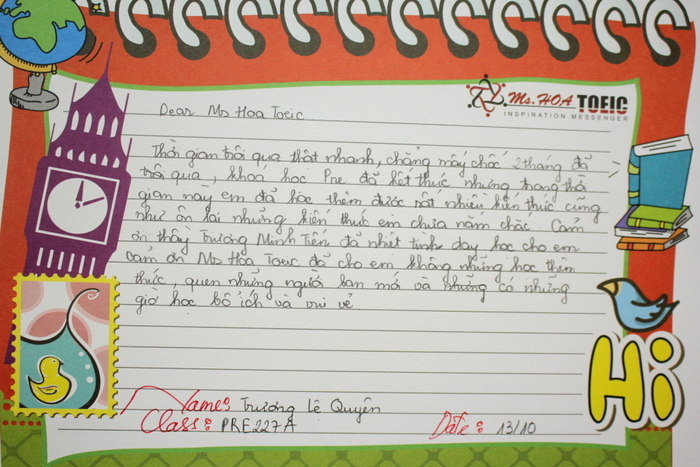 Ms. HOA TOEIC
INSPIRATION MESSENGER
Dear Ms Hoa Toeic
Thời gian trôi qua thật nhanh, chẳng mấy chốc 2 tháng đã
trôi qua, khoá học Pre đã kết thúc nhưng trong thời
gian này em đã học thêm được rất nhiều kiến thức cũng
như ôn lại những kiến thức em chưa nắm chắc. Cảm
ơn thầy Trương Minh Tiến đã nhiệt tình dạy học cho em
Cảm ơn Ms Hoa Toeic đã cho em không những học thêm
thức, quen những người bạn mới và những có những
giờ học bổ ích và vui vẻ.
Hi
Name: Trương Lệ Quyên
Class: PRE227A Date: 13/10